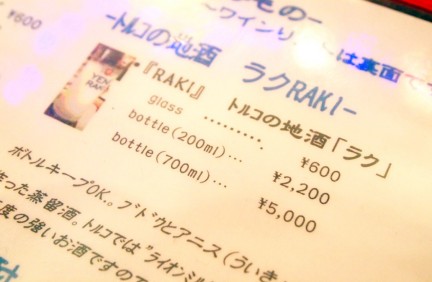 ¥600
もの-
～ワインリストは裏面で
-トルコの地酒 ラクRAKI-
YENİ RAKI
『RAKI』 トルコの地酒「ラク」
glass ......... ¥600
bottle(200ml)… ¥2,200
bottle(700ml)… ¥5,000
ボトルキープOK。ブドウとアニス(ういき
った蒸留酒。トルコでは"ライオンミル
度の強いお酒ですの